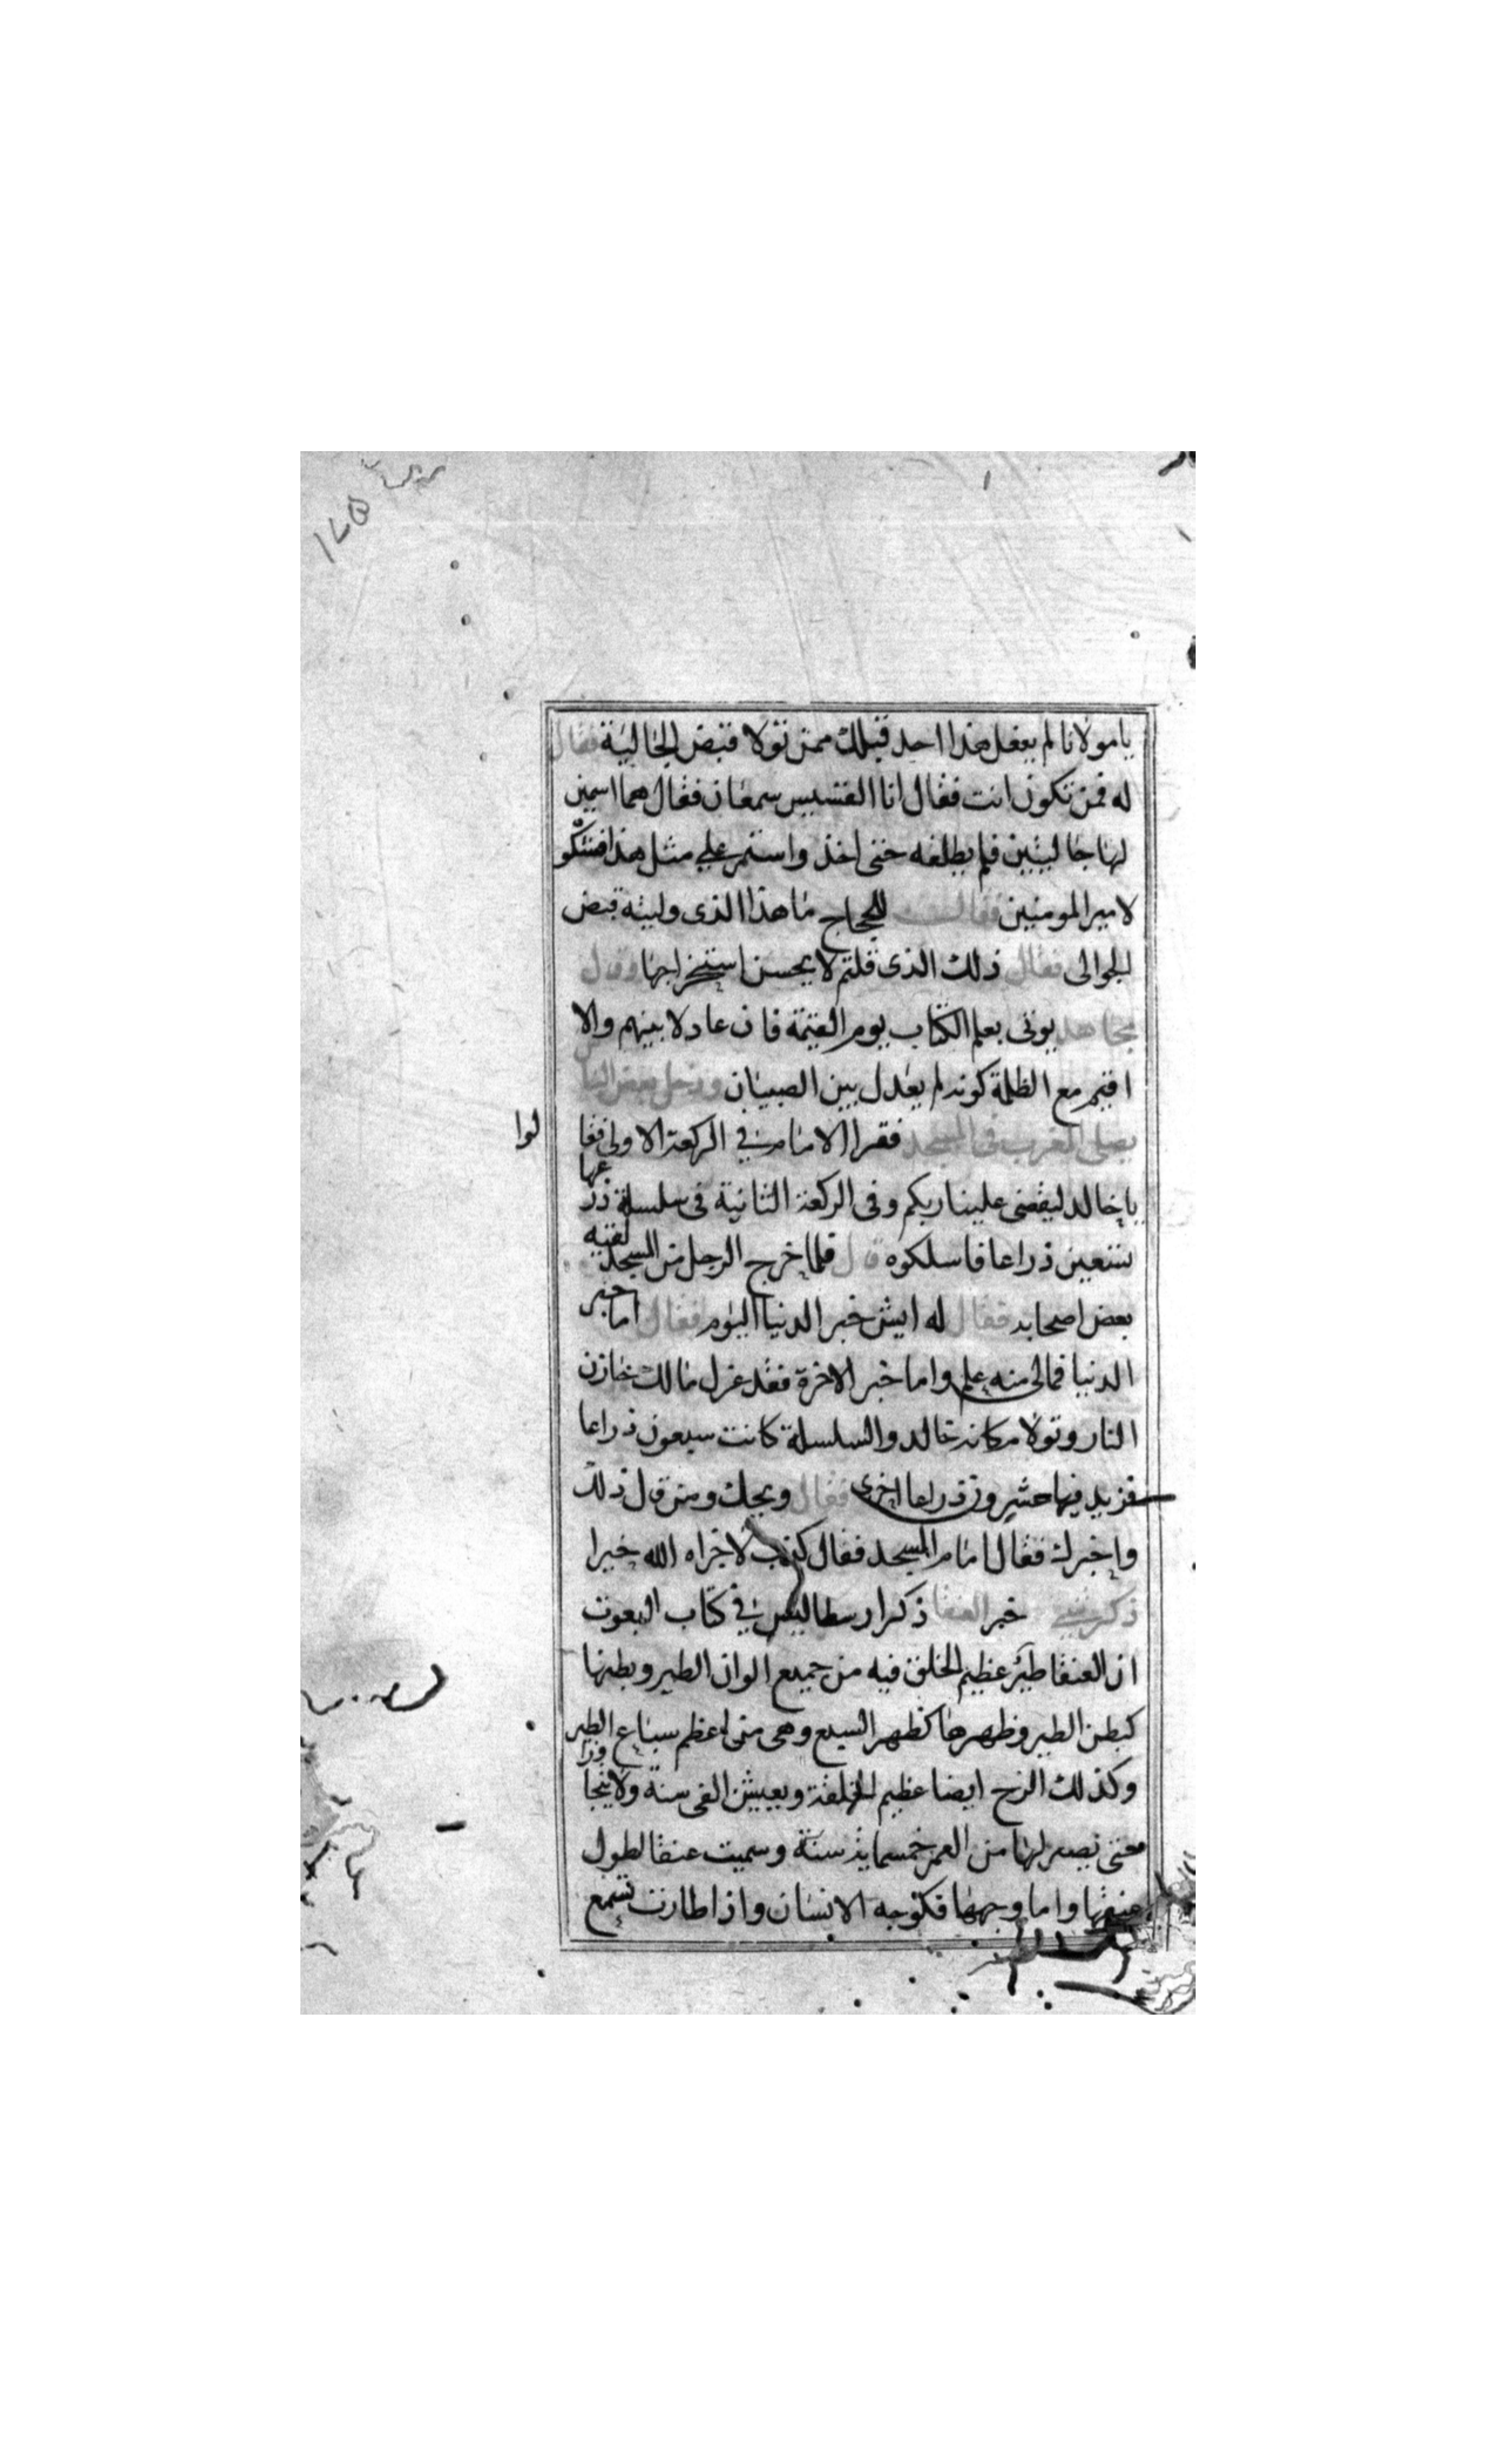 يا مولانا لم يفعل هذا احد قبلك ممن تولا قبض الجاليئة فقال
له فمن تكون انت فقال انا القسيس سمعان فقال هما اسمين
لهنا جاليتين فلم يطلقه حتى اخذ واستمر على مثل هذا فشكو
لامير المومنين فقال للحجاج ما هذا الذى وليته قبض
الجوالى فقال ذلك الذى قلتم لا يحسن استخراجها وقال
مجاهد يوتى بعلم الكتاب يوم القيمة فان عادلا بينهم والا
اقيم مع الظلمة كونه لم يعدل بين الصبيان ودخل بعض الناس
يصلى المغرب فى المسجد فقرا الامام في الركعة الاولى فقا
لوا
يا خالد ليقضى علينا ربكم وفى الركعة الثانية فى سلسلة ذرعها
تسعين ذراعا فاسلكوه قال فلما خرج الرجل من المسجد لقيه
بعض اصحابه فقال له ايش خبر الدنيا اليوم فقال اما خبر
الدنيا فمالى منه علم واما خبر الاخرة فقد عزل مالك خازن
النار وتولا مكانه خالد والسلسلة كانت سبعون ذراعا
فزيد فيها عشرون ذراعا اخرى فقال ويحك ومن قال ذلك
واخبرك فقال امام المسجد فقال كذب لا جزاه الله خيرا
ذكر خبر العنقا ذكر ارسطاليس في كتاب النعوت
ان العنقا طير عظيم الخلق فيه من جميع الوان الطير وبطنها
كبطن الطير وظهرها كظهر السبع وهى من اعظم سباع الطير
وكذلك الرخ ايضا عظيم الخلقة ويعيش الفى سنة ولا يتجاوزا
حتى يصير لها من العمر خمسماية سنة وسميت عنقا لطول
عنقها واما وجهها فكوجه الانسان واذا طارت تسمع